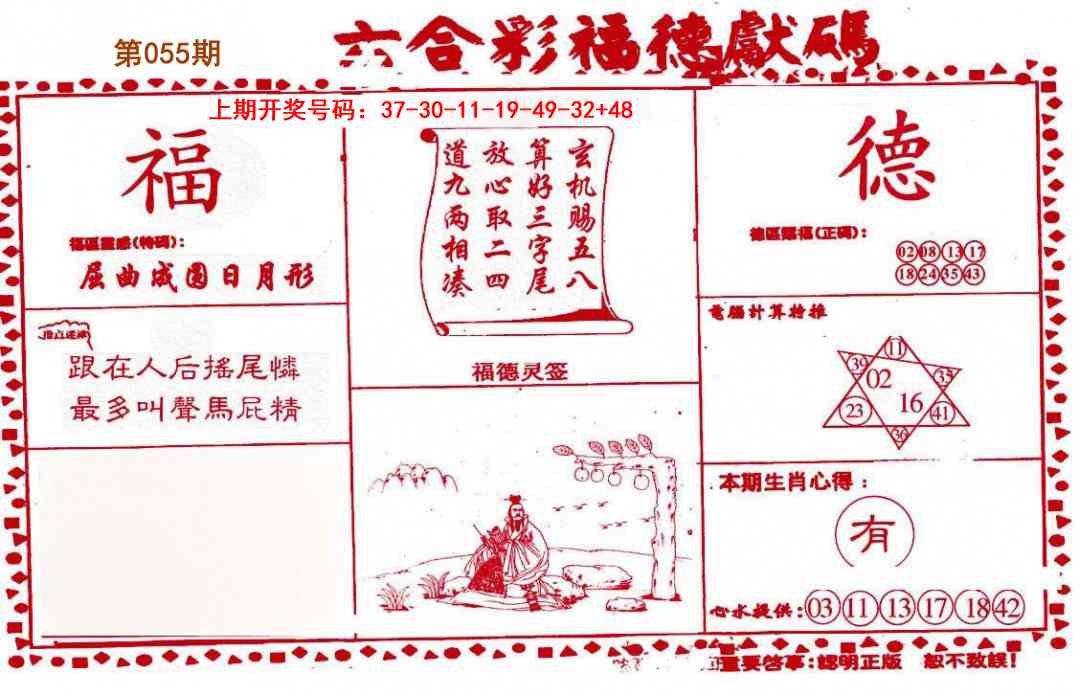 第055期
六合彩福德獻碼
上期开奖号码：37-30-11-19-49-32+48
福
福區靈感(特碼)：
屈曲成圆日月形
跟在人后摇尾憐
最多叫聲馬屁精
玄机赐五八
算好三字尾
放心取二四
道九两相凑
福德灵签
德
德區賜福(正碼)：
02 08 13 17
18 24 35 43
電腦計算特推
11
39 02 35
23 16 41
36
本期生肖心得：
有
心水提供：03 11 13 17 18 42
重要啓事：認明正版 恕不致誤！